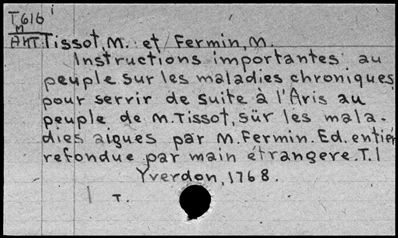 T616 i
M
AHT. Tissot, M. et Fermin, M.
Instructions importantes au
peuple sur les maladies chroniques
pour servir de suite à l'Avis au
peuple de M. Tissot, sür les mala-
dies aigues par M. Fermin. Ed. entier
refondue par main étrangere. T. I
Yverdon, 1768.
T.